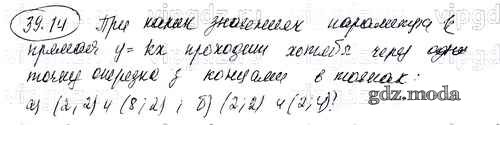 39.14 При каких значениях параметра k
прямая y = kx проходит хотя бы через одну
точку отрезка с концами в точках:
а) (2; 2) и (8; 2); б) (2; 2) и (2; 4)?
gdz.moda